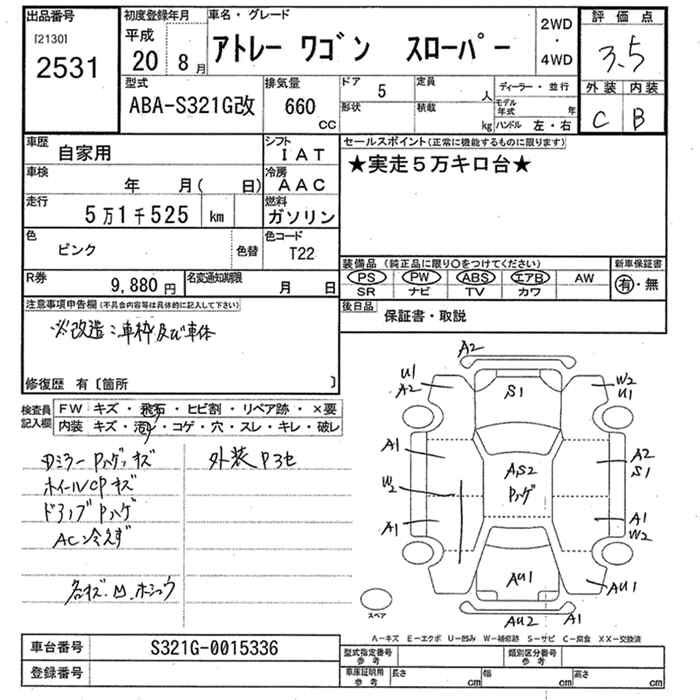 出品番号
[2130]
2531
初度登録年月
平成
20 8月
車名・グレード
アトレー ワゴン スローパー
2WD
・
4WD
評価点
3.5
外装 内装
C B
型式
ABA-S321G改
排気量
660
CC
ドア 5
形状
定員 人
積載 kg
ディーラー・並行
モデル年式 年
ハンドル 左・右
車歴
自家用
シフト
IAT
車検
年 月( 日)
冷房
AAC
走行
5万1千525 km
燃料
ガソリン
色
ピンク
色替
色コード
T22
R券
9,880円
名変通知期限
月 日
セールスポイント(正常に機能するものに限ります)
★実走5万キロ台★
装備品(純正品に限り○をつけてください)
PS PW ABS エアB AW
SR ナビ TV カワ
新車保証書
有・無
後日品
保証書・取説
注意事項申告欄(不具合内容等は具体的に記入して下さい)
※改造:車枠及び車体
修復歴 有〔箇所 〕
検査員
記入欄
FW キズ・飛石・ヒビ割・リペア跡・×要
内装 キズ・汚・コゲ・穴・スレ・キレ・破レ
Dミラー Pハゲ、キズ
外装 Pヨセ
ホイールCP キズ
ドアノブ Pハゲ
AC冷えず
名キズ.凹.ホシュウ
A2
U1
A2
S1
W2
U1
A1
A2
S1
A,S2
Pハゲ
W2
A1
A1
W2
AU1
AU1
AU2
A1
スペア
A-キズ E-エクボ U-凹み W-補修跡 S-サビ C-腐食 XX-交換済
車台番号
S321G-0015336
登録番号
型式指定番号
参考
類別区分番号
参考
車庫証明用
参考
長さ cm
幅 cm
高さ cm